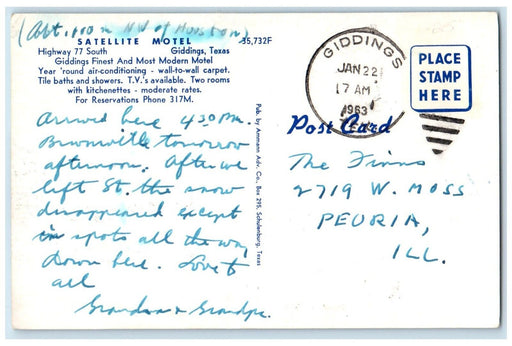 (Abt. 100 m NW of Houston)
SATELLITE MOTEL 35,732F
Highway 77 South Giddings, Texas
Giddings Finest And Most Modern Motel
Year 'round air-conditioning - wall-to-wall carpet.
Tile baths and showers. T.V.'s available. Two rooms
with kitchenettes - moderate rates.
For Reservations Phone 317M.
Arrived here 4:30 PM.
Brownsville tomorrow
afternoon. After we
left St. the snow
disappeared except
in spots all the way
down here. Love to
all
Grandma & Grandpa.
Pub. by Ammann Adv. Co., Box 295, Schulenburg, Texas
GIDDINGS
JAN 22
17 AM
1963
PLACE
STAMP
HERE
Post Card
The Finns
2719 W. MOSS
PEORIA,
ILL.